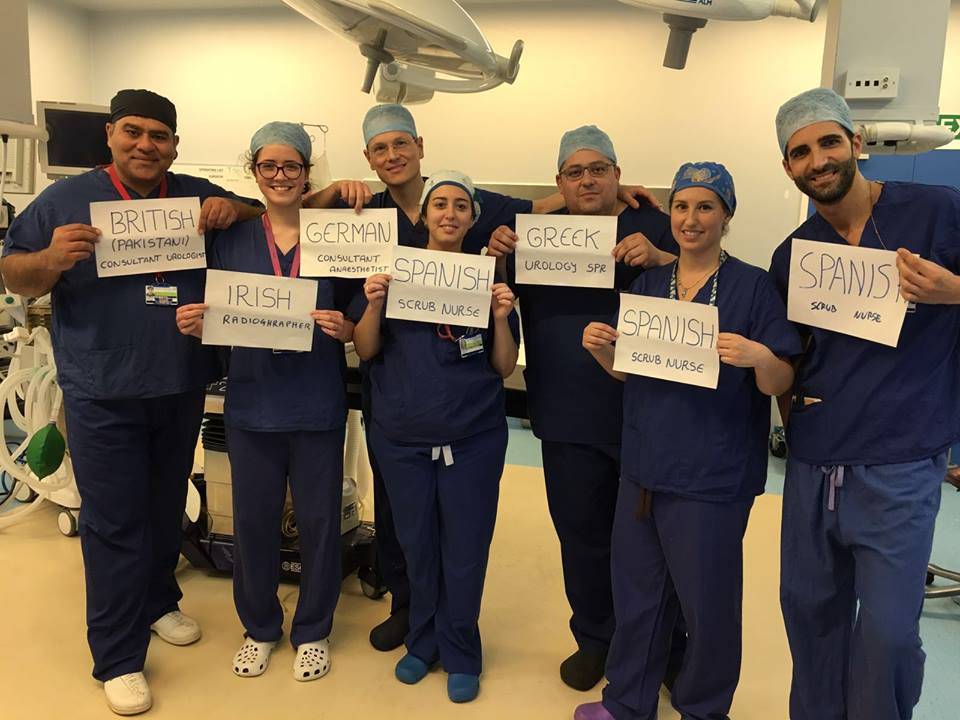 BRITISH
(PAKISTANI)
CONSULTANT UROLOGIST
IRISH
RADIOGHRAPHER
GERMAN
CONSULTANT
ANAESTHETIST
SPANISH
SCRUB NURSE
GREEK
UROLOGY SPR
SPANISH
SCRUB NURSE
SPANISH
SCRUB NURSE
ALM